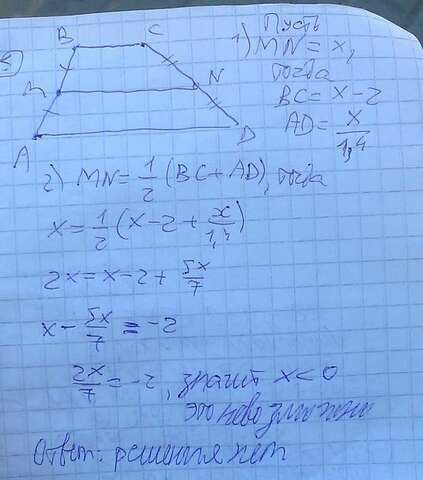 3)
B C
M N
A D
1) Пусть
MN = x,
тогда
BC = x - 2
AD = x/1,4
2) MN = 1/2 (BC + AD), тогда
x = 1/2 (x - 2 + x/1,4)
2x = x - 2 + 5x/7
x - 5x/7 = -2
2x/7 = -2, значит x < 0
это невозможно
Ответ: решения нет